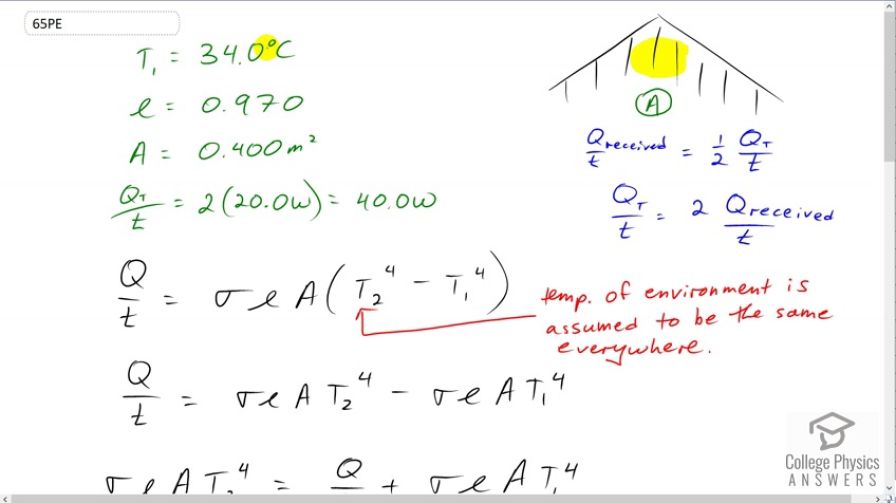 65PE
T₁ = 34.0°C
e = 0.970
A = 0.400 m²
Q_T/t = 2(20.0W) = 40.0W
A
Q received/t = 1/2 Q_T/t
Q_T/t = 2 Q received/t
Q/t = σ e A (T₂⁴ - T₁⁴)
temp. of environment is
assumed to be the same
everywhere.
Q/t = σ e A T₂⁴ - σ e A T₁⁴
σ e A T₂⁴ = Q + σ e A T₁⁴
College Physics
ANSWERS